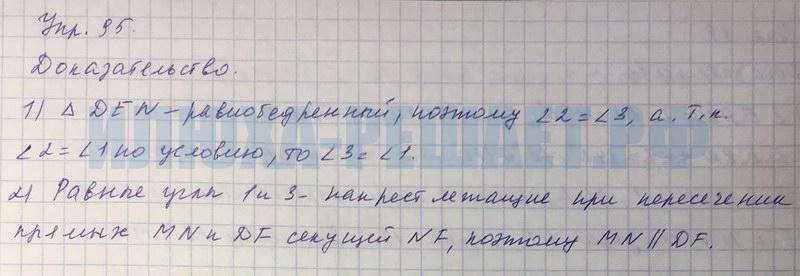 Упр. 95.
Доказательство.
1) △ DEN – равнобедренный, поэтому ∠2 = ∠3, а т.к.
∠2 = ∠1 по условию, то ∠3 = ∠1.
2) Равные углы 1 и 3 – накрест лежащие при пересечении
прямых MN и DF секущей NF, поэтому MN || DF.
ИЛЮХА-РЕШАЕТ.РФ